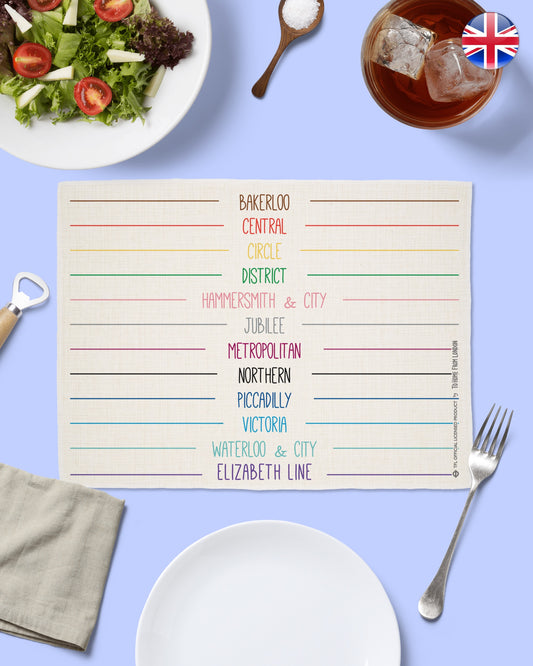 BAKERLOO
CENTRAL
CIRCLE
DISTRICT
HAMMERSMITH & CITY
JUBILEE
METROPOLITAN
NORTHERN
PICCADILLY
VICTORIA
WATERLOO & CITY
ELIZABETH LINE
TFL OFFICIAL LICENSED PRODUCT BY TO HOME FROM LONDON